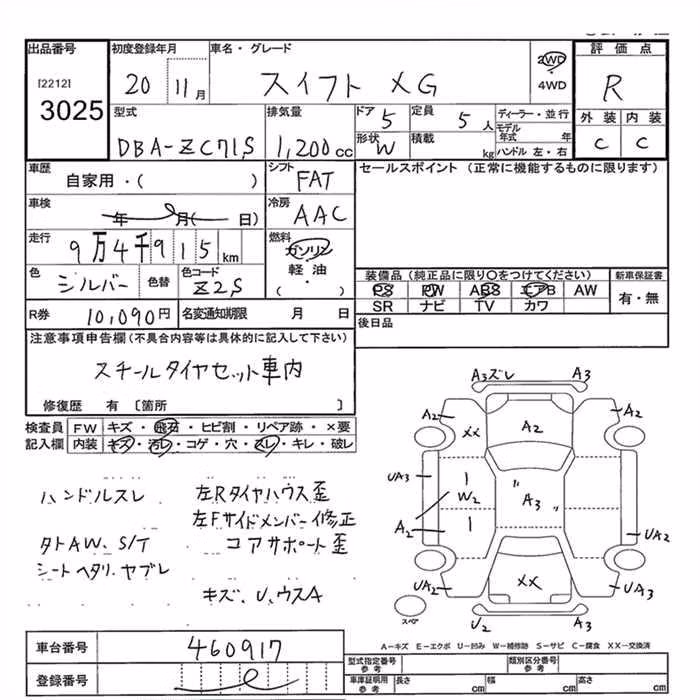 出品番号 初度登録年月 車名・グレード 評価点
[2212] 20 11月 スイフト XG 2WD R
3025 4WD
型式 排気量 ドア 5 定員 5人 ディーラー・並行 外装 内装
DBA-ZC71S 1,200cc 形状 W 積載 kg モデル年式 年 C C
ハンドル 左・右
車歴 シフト セールスポイント (正常に機能するものに限ります)
自家用・( ) FAT
車検 年 月( 日) 冷房 AAC
走行 9万4千915km 燃料 ガソリン
軽・油
( ・ )
色 シルバー 色替 色コード Z2S 装備品 (純正品に限り○をつけてください) 新車保証書
PS PW ABS エアB AW 有・無
SR ナビ TV カワ
R券 10,090円 名変通知期限 月 日 後日品
注意事項申告欄(不具合内容等は具体的に記入して下さい)
スチールタイヤセット車内
修復歴 有 〔箇所 〕
検査員 FW キズ・飛石・ヒビ割・リペア跡・×要
記入欄 内装 キズ・汚レ・コゲ・穴・スレ・キレ・破レ
A3ズレ A3
A2 XX A2 A2
UA3 W2 A3
A2 UA2
UA2 XX UA3
スペア U2 A3
ハンドルスレ 左Rタイヤハウス歪
左Fサイドメンバー修正
タトAW、S/T コアサポート歪
シートヘタリ、ヤブレ
キズ、U、ウスA
A-キズ E-エクボ U-凹み W-補修跡 S-サビ C-腐食 XX-交換済
車台番号 460917
登録番号
型式指定番号 参考 類別区分番号 参考
車庫証明用 参考 長さ cm 幅 cm 高さ cm